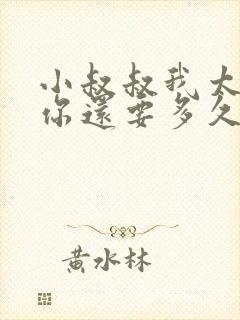 小叔叔我大
你還要多久
黃水林